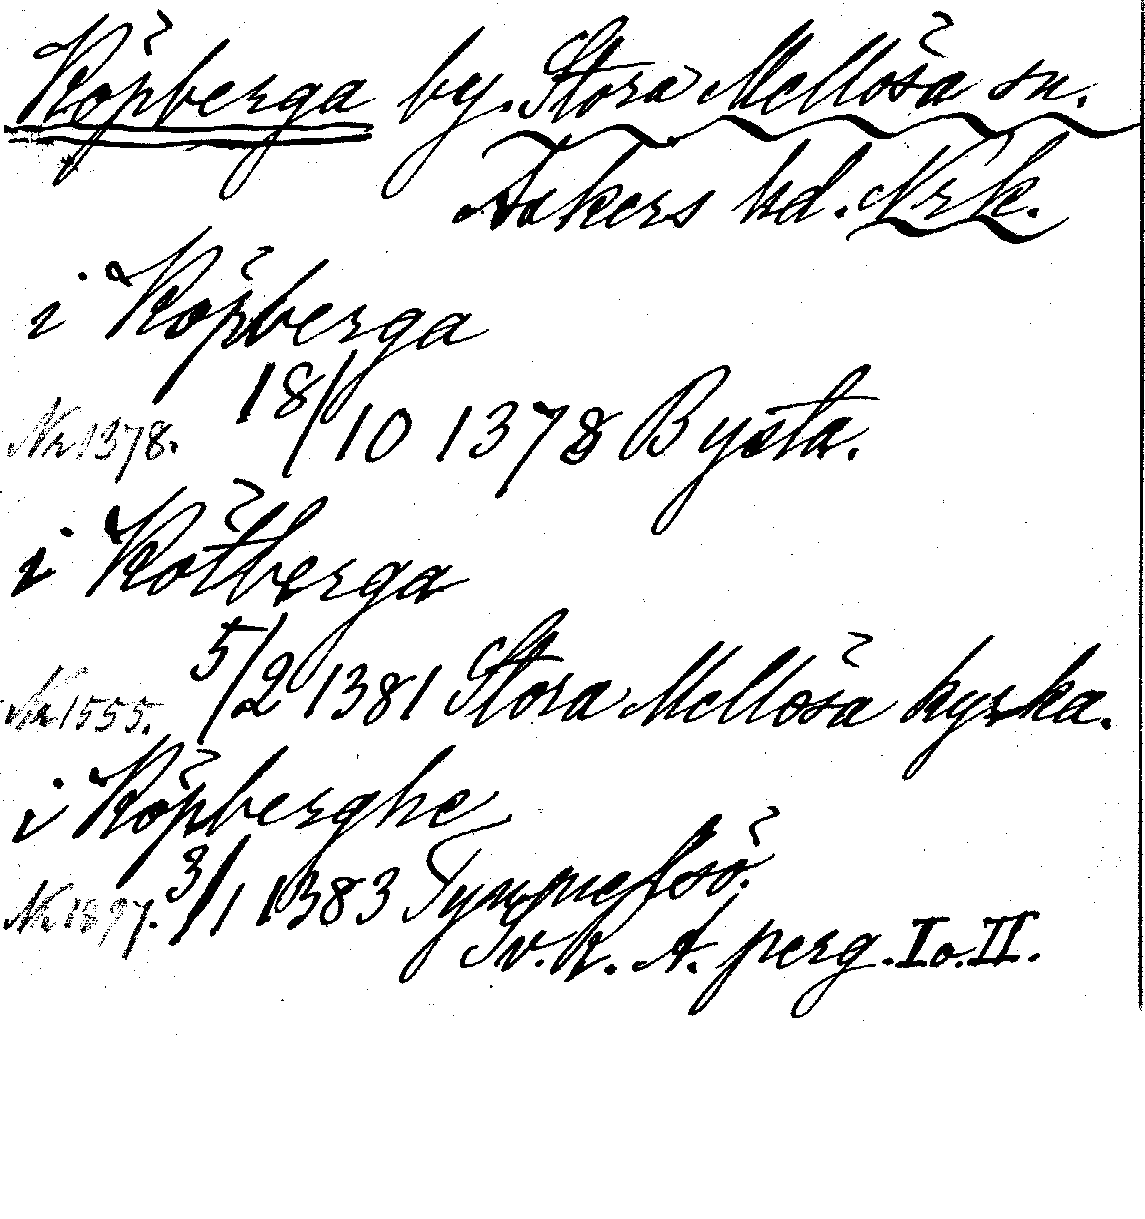 Köpberga by. Stora Mellösa sn.
Askers hd. Nrk.
i Köpberga
Nr 1378. 18/10 1378 Bysta.
i Kötberga
Nr 1555. 5/2 1381 Stora Mellösa kyrka.
i Köpberghe
Nr 1897. 3/1 1383 Tynnelsö.
Sv. R. A. perg. I o. II.